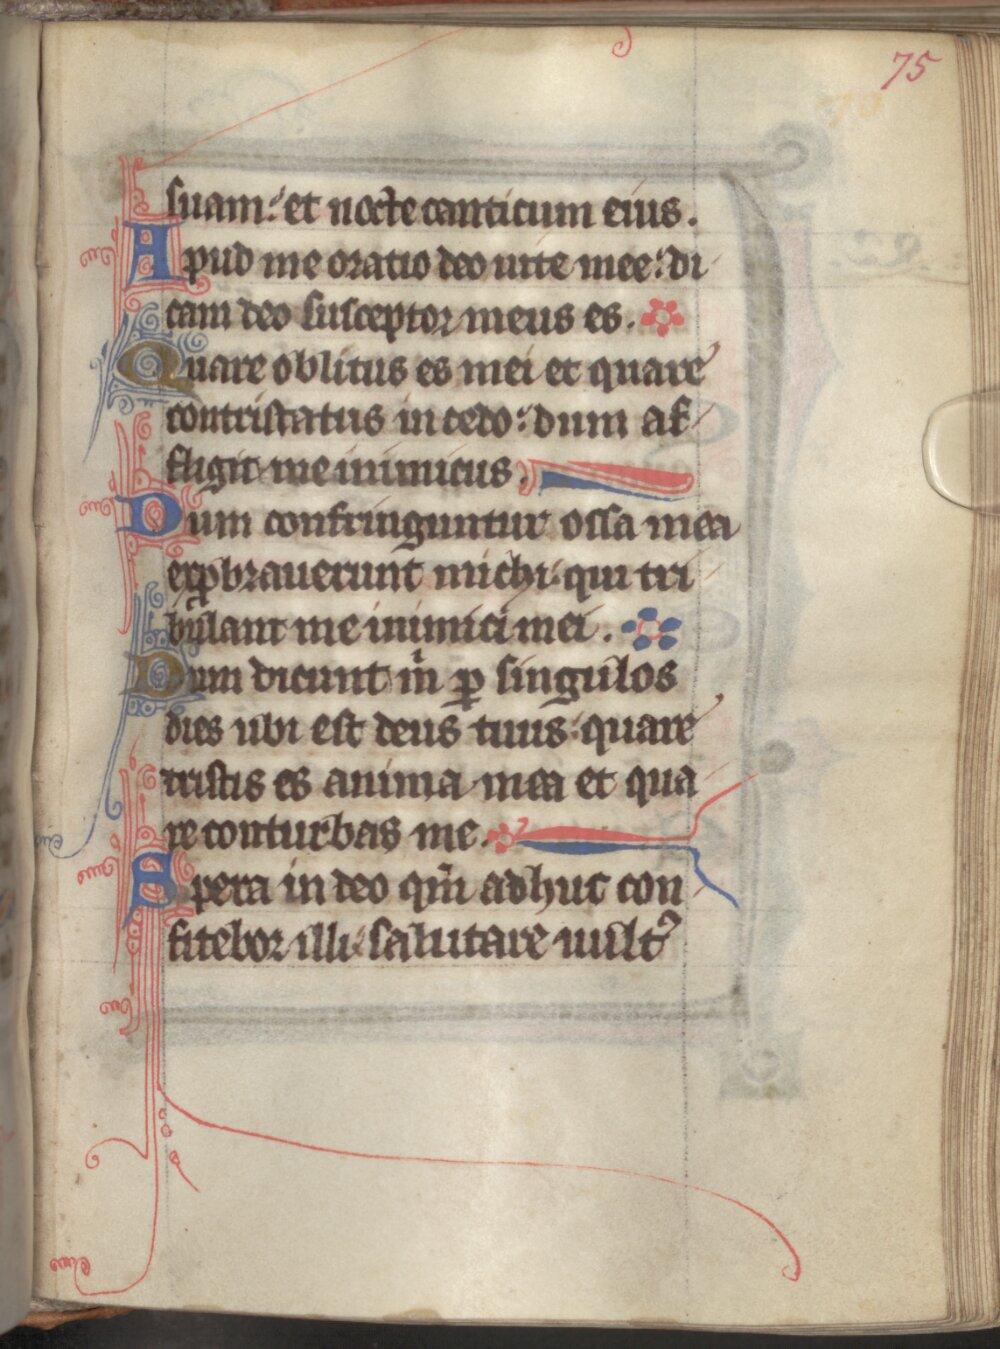 75
suam: et nocte canticum eius.
Apud me oratio deo uite mee: di
cam deo susceptor meus es.
Quare oblitus es mei et quare
contristatus incedo: dum af
fligit me inimicus.
Dum confringuntur ossa mea
exꝓbrauerunt michi qui tri
bulant me inimici mei.
Dum dicunt m̄ ꝑ singulos
dies ubi est deus tuus quare
tristis es anima mea et qua
re conturbas me.
Spera in deo qm̄ adhuc con
fitebor illi salutare uult᷒